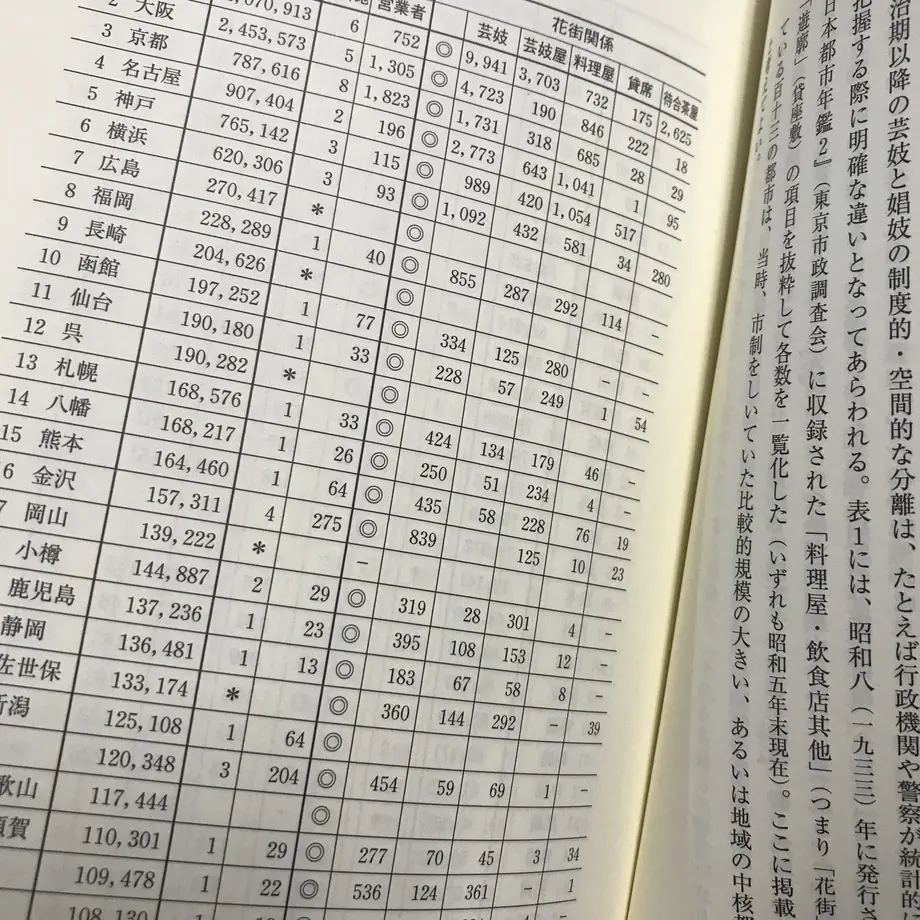 治期以降の芸妓と娼妓の制度的・空間的な分離は、たとえば行政機関や警察が統計的
把握する際に明確な違いとなってあらわれる。表1には、昭和八(一九三三)年に発行さ
日本都市年鑑2』(東京市政調査会)に収録された「料理屋・飲食店其他」(つまり「花街
「遊廓」(貸座敷)の項目を抜粋して各数を一覧化した(いずれも昭和五年末現在)。ここに掲載
ている百十三の都市は、当時、市制をしいていた比較的規模の大きい、あるいは地域の中核都
営業者 花街関係
芸妓 芸妓屋 料理屋 貸席 待合茶屋
2,070,913 6 752 ◎ 9,941 3,703 732 175 2,625
2 大阪 2,453,573 5 1,305 ◎ 4,723 190 846 222 18
3 京都 787,616 8 1,823 ◎ 1,731 318 685 28 29
4 名古屋 907,404 2 196 ◎ 2,773 643 1,041 1 95
5 神戸 765,142 3 115 ◎ 989 420 1,054 517
6 横浜 620,306 3 93 ◎ 1,092 432 581 34 280
7 広島 270,417 * ◎
8 福岡 228,289 1 40 ◎ 855 287 292 114 −
9 長崎 204,626 * ◎
10 函館 197,252 1 77 ◎ 334 125 280 − −
11 仙台 190,180 1 33 ◎ 228 57 249 1 54
12 呉 190,282 * ◎
13 札幌 168,576 1 33 424 134 179 46
14 八幡 168,217 1 26 ◎ 250 51 234 4 −
15 熊本 164,460 1 64 ◎ 435 58 228 76 19
16 金沢 157,311 4 275 ◎ 839 125 10 23
7 岡山 139,222 * −
小樽 144,887 2 29 ◎ 319 28 301 4 −
鹿児島 137,236 1 23 ◎ 395 108 153 12 −
静岡 136,481 1 13 ◎ 183 67 58 8 −
佐世保 133,174 * ◎ 360 144 292 − 39
新潟 125,108 1 64 ◎
120,348 3 204 ◎ 454 59 69 1 −
歌山 117,444 ◎
須賀 110,301 1 29 ◎ 277 70 45 3 34
109,478 1 22 ◎ 536 124 361 − 1
108,130